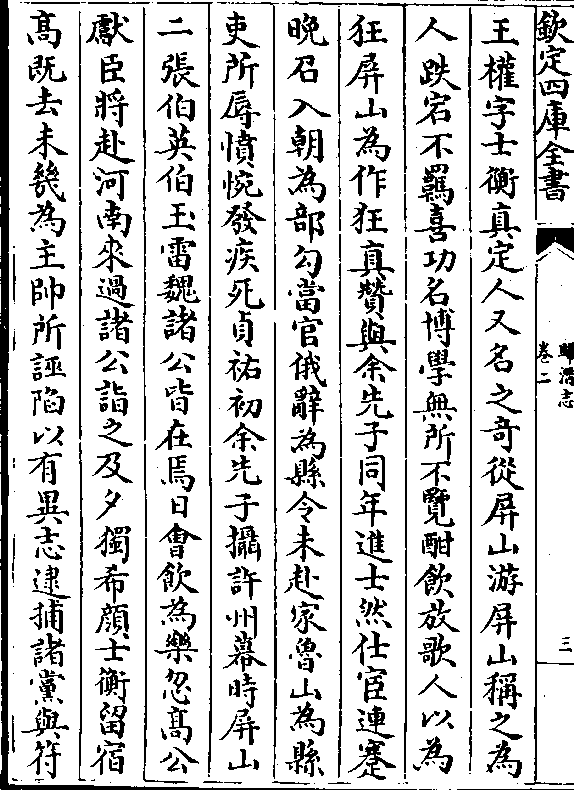 欽定四庫全書
歸潛志
卷二
三
王權字士衡真定人又名之奇從屏山游屏山稱之為
人跌宕不羈喜功名博學無所不覽酣飲放歌人以為
狂屏山為作狂真贊與余先子同年進士然仕宦連蹇
晚召入朝為部勾當官俄辭為縣令未赴家魯山為縣
吏所辱憤惋發疾死貞祐初余先子攝許州幕時屏山
二張伯英伯玉雷魏諸公皆在焉日會飲為樂忽高公
獻臣將赴河南來過諸公詣之及夕獨希顔士衡留宿
髙既去未幾為主帥所誣陷以有異志逮捕諸黨與符